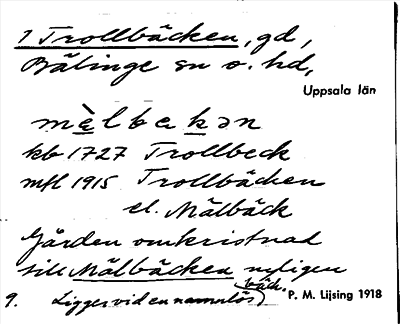 1 Trollbäcken, gd,
Bälinge sn o. hd,
Uppsala län
mèlbekən
kb 1727 Trollbeck
mfl 1915 Trollbäcken
el. Mälbäck
Gården omkristnad
till Mälbäcken nyligen
9. Ligger vid en namnlös bäck.
P. M. Lijsing 1918